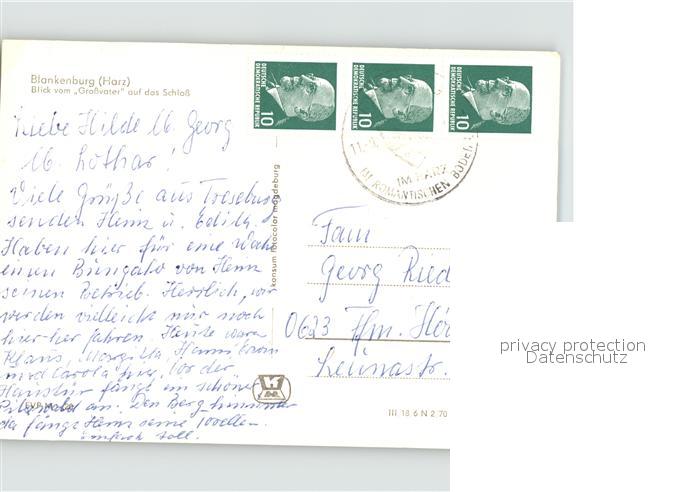 Blankenburg (Harz)
Blick vom „Großvater" auf das Schloß
DEUTSCHE DEMOKRATISCHE REPUBLIK 10
DEUTSCHE DEMOKRATISCHE REPUBLIK 10
DEUTSCHE DEMOKRATISCHE REPUBLIK 10
IM HARZ
IM ROMANTISCHEN BODE
Liebe Hilde u. Georg
u. Lothar!
Viele Grüße aus Treseburg
senden Heinz u. Edith.
Haben hier für eine Woche
einen Bungalo von Heinz
seinen Betrieb. Herrlich, wir
werden vielleicht nur noch
hier-her fahren. Heute waren
Klaus, Margitta,
und Carola hier. Vor der
Haustür fängt ein schöner
an. Den Berg hinunter
da fängt Heinz seine Forellen.
einfach toll.
konsum fotocolor magdeburg
Fam
Georg Ried
Leunastr.
III 18 6 N 2 70
privacy protection
Datenschutz